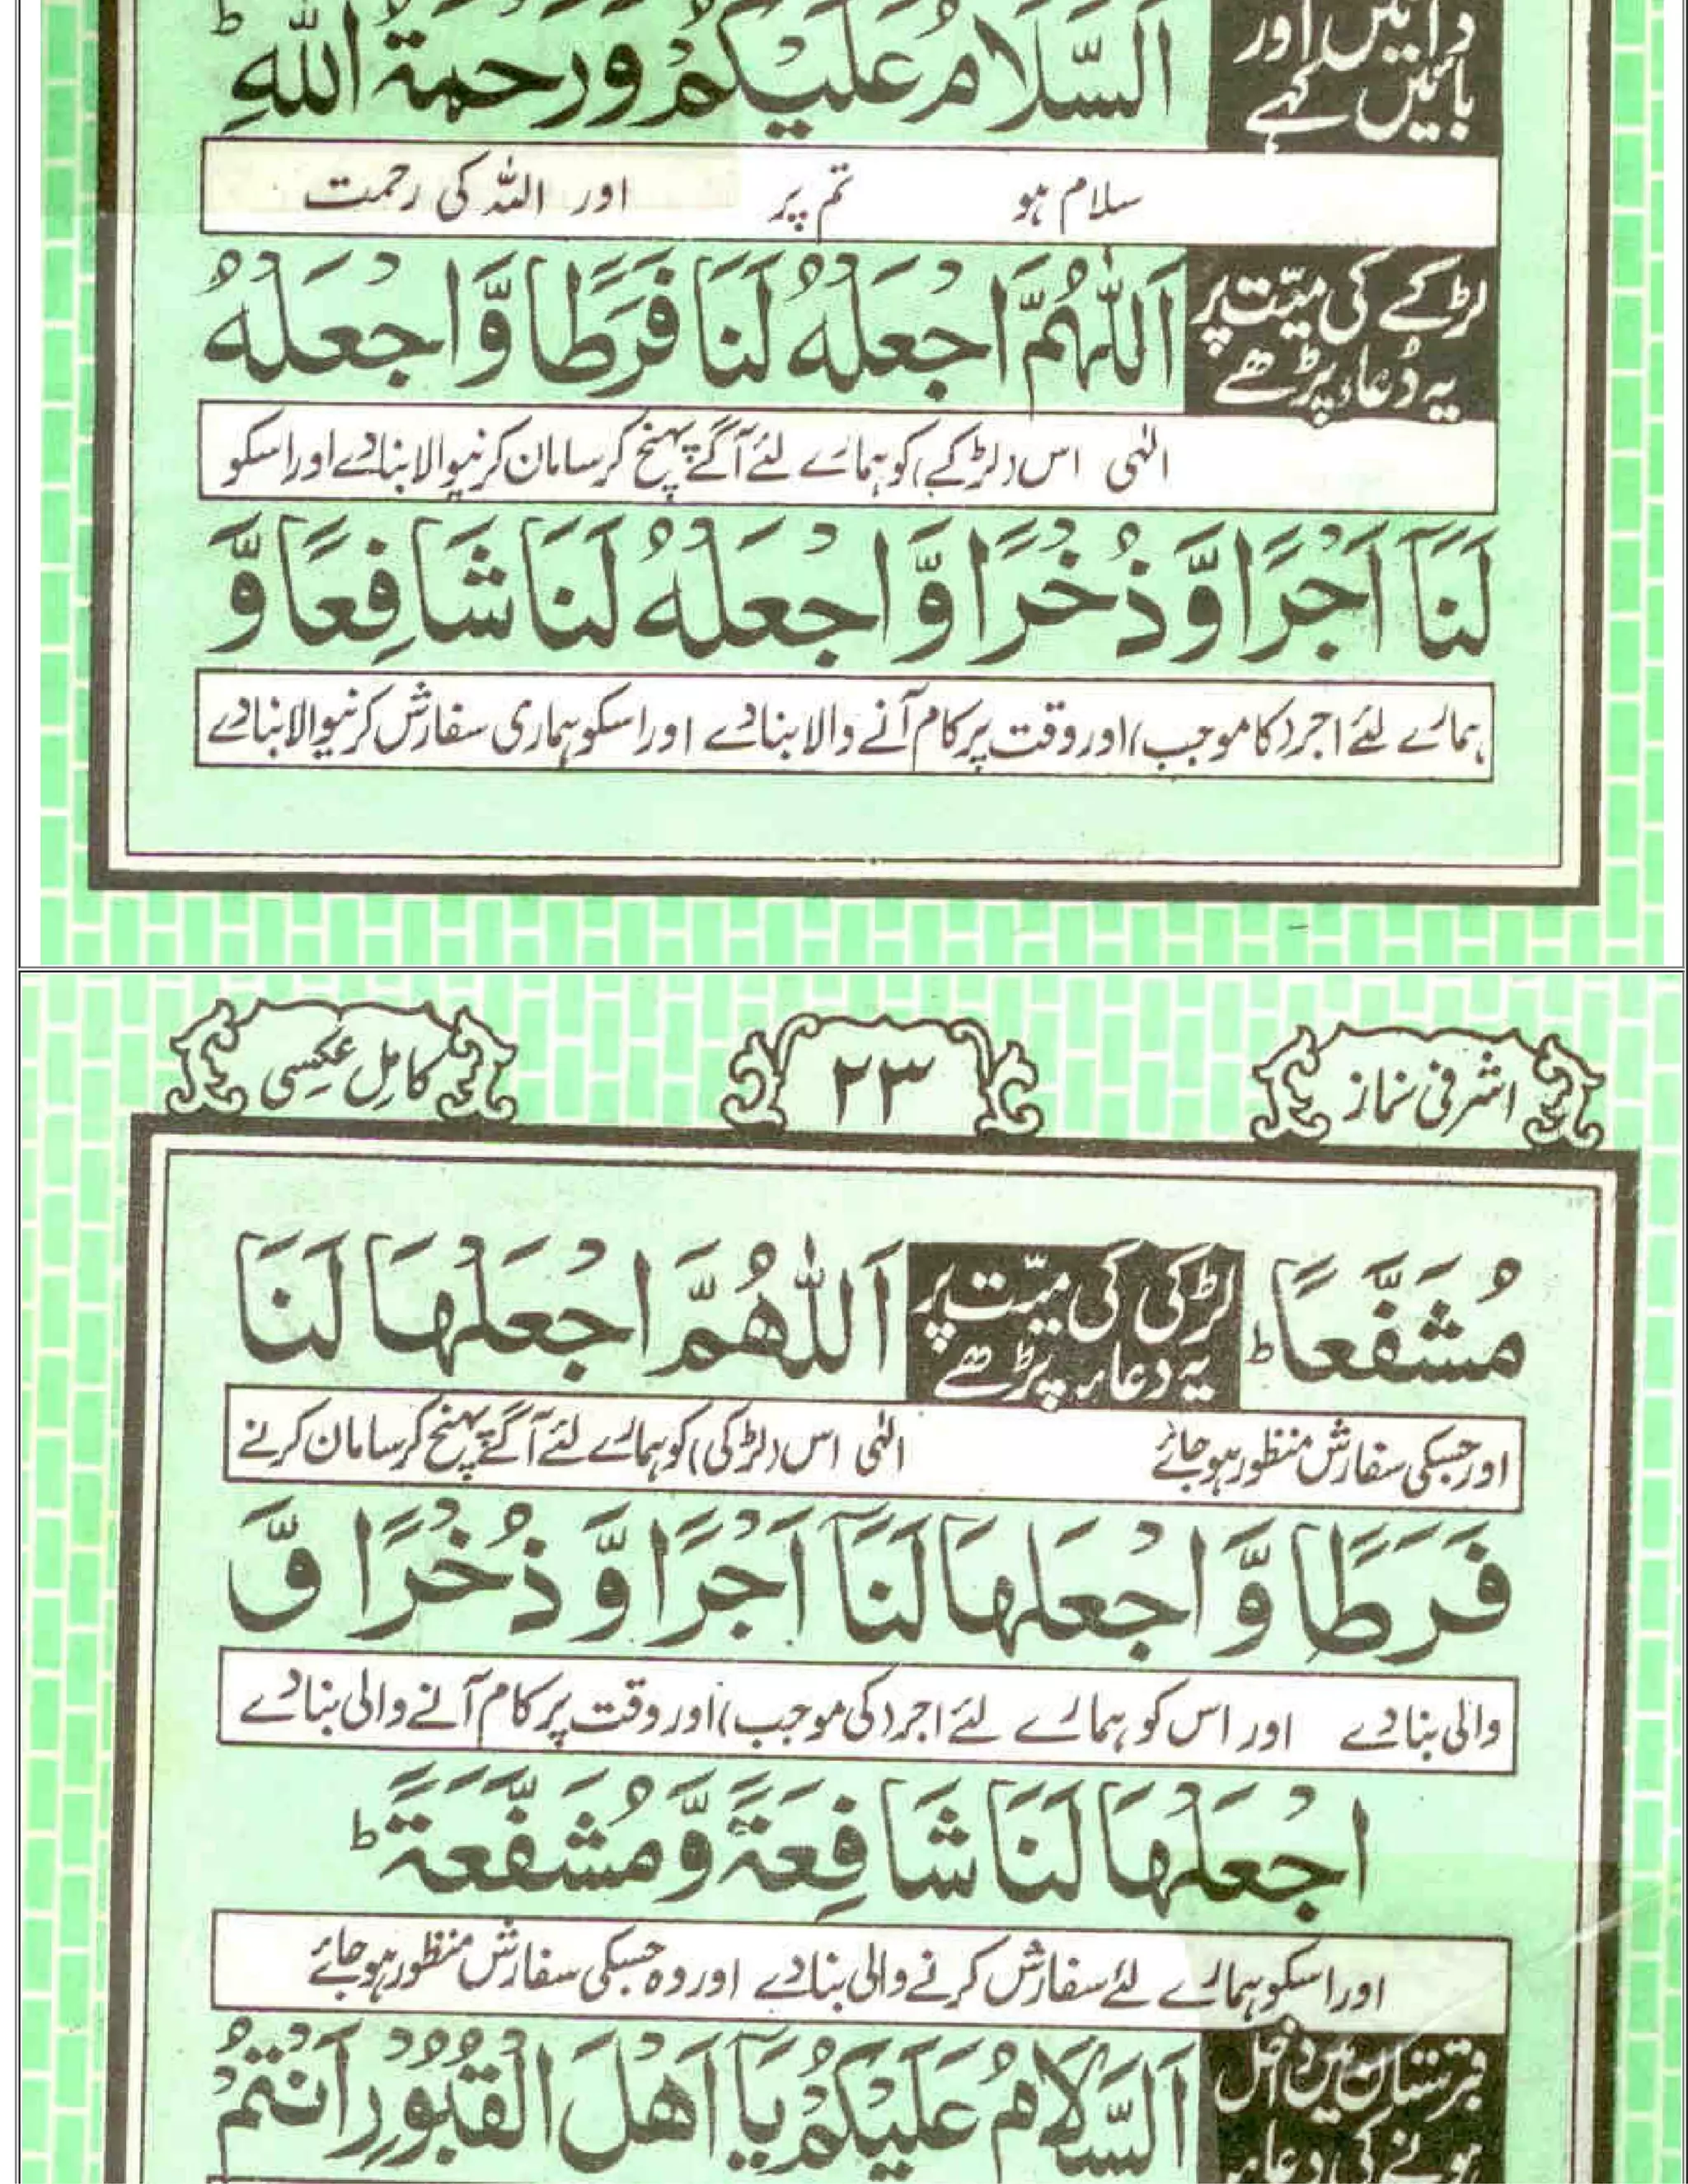 دائیں اور
بائیں کہے
اَلسَّلَامُ عَلَیْکُمْ وَرَحْمَۃُ اللّٰہِ ؕ
سلام ہو تم پر اور اللہ کی رحمت
لڑکے کی میّت پر
یہ دُعاء پڑھے
اَللّٰہُمَّ اجْعَلْہُ لَنَا فَرَطًا وَّاجْعَلْہُ
الٰہی اس (لڑکے) کو ہمارے لئے آگے پہنچ کر سامان کرنیوالا بنادے اور اسکو
لَنَآ اَجْرًا وَّذُخْرًا وَّاجْعَلْہُ لَنَا شَافِعًا وَّ
ہمارے لئے اجر (کا موجب) اور وقت پر کام آنے والا بنادے اور اسکو ہماری سفارش کرنیوالا بنادے
اشرفی نماز
۲۳
کامل عکسی
مُشَفَّعًا ؕ
لڑکی کی میّت پر
یہ دعاء پڑھے
اَللّٰھُمَّ اجْعَلْھَا لَنَا
اور جسکی سفارش منظور ہو جائے الٰہی اس (لڑکی) کو ہمارے لئے آگے پہنچ کر سامان کرنے
فَرَطًا وَّاجْعَلْھَا لَنَآ اَجْرًا وَّذُخْرًا وَّ
والی بنادے اور اس کو ہمارے لئے اجر (کی موجب) اور وقت پر کام آنے والی بنادے
اجْعَلْھَا لَنَا شَافِعَۃً وَّمُشَفَّعَۃً ؕ
اور اسکو ہمارے لئے سفارش کرنے والی بنادے اور وہ جسکی سفارش منظور ہو جائے
قبرستان میں داخل
ہونے کی دعاء
اَلسَّلَامُ عَلَیْکُمْ یَآ اَھْلَ الْقُبُوْرِ اَنْتُمْ